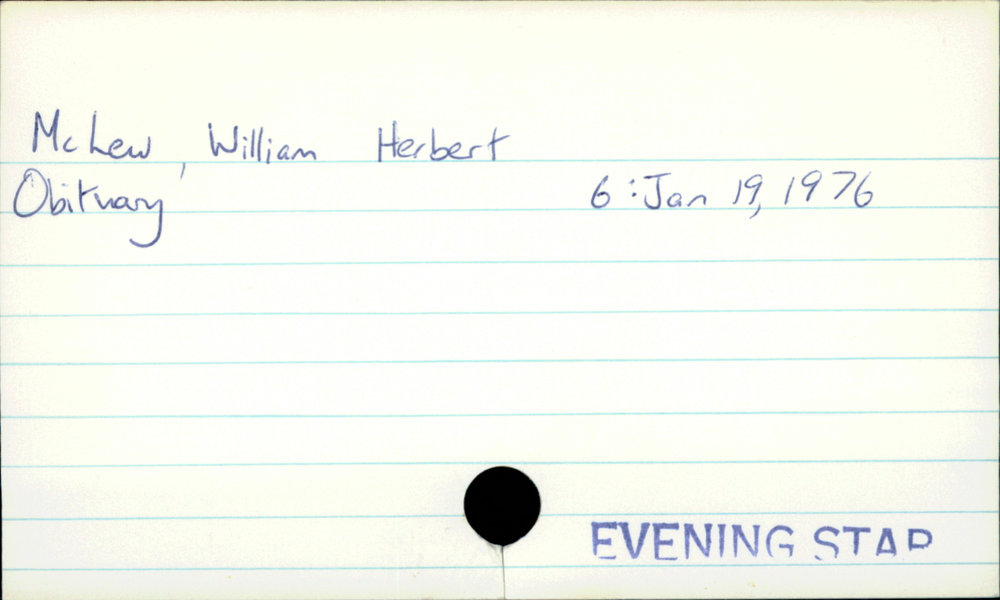 McLew, William Herbert
Obituary 6:Jan 19, 1976
EVENING STAR